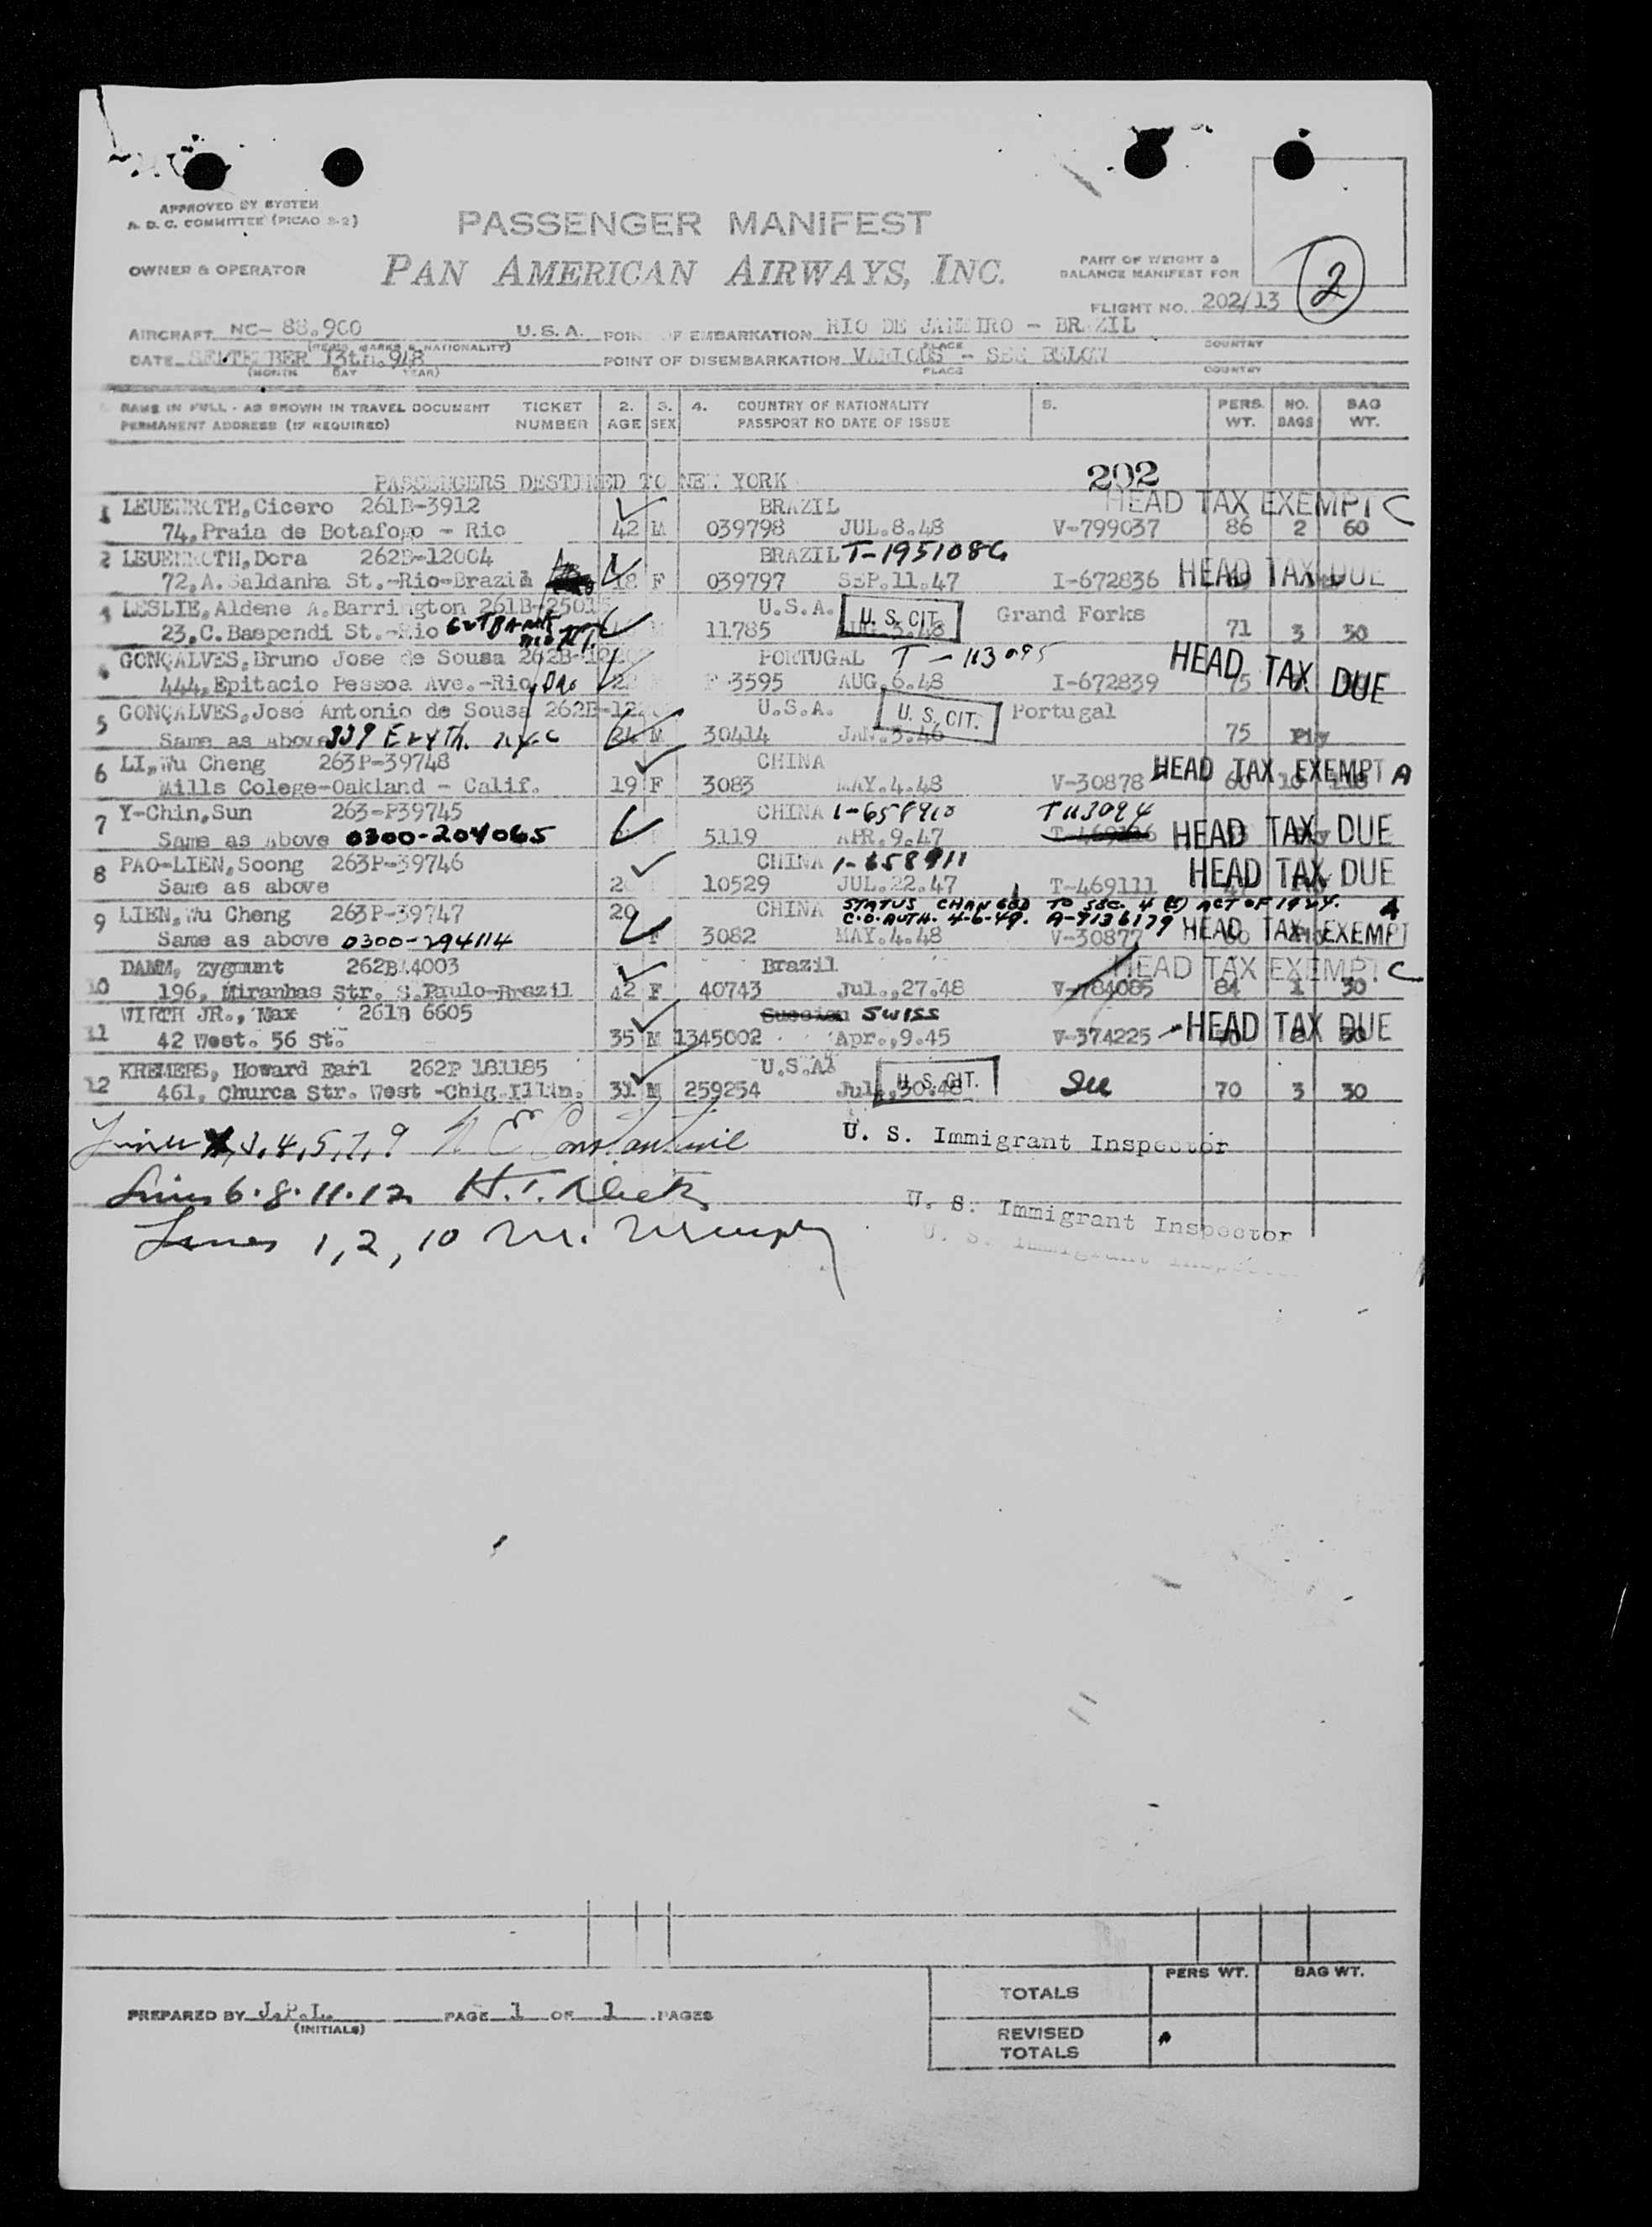 APPROVED BY SYSTEM
A. D. C. COMMITTEE (PICAO S-2)
PASSENGER MANIFEST
OWNER & OPERATOR
PAN AMERICAN AIRWAYS, INC.
PART OF WEIGHT &
BALANCE MANIFEST FOR
2
FLIGHT NO. 202/13
AIRCRAFT NC- 88.900 U.S.A. POINT OF EMBARKATION RIO DE JANEIRO - BRAZIL
(REGIS. MARKS & NATIONALITY) PLACE COUNTRY
DATE SEPTEMBER 13th.948 POINT OF DISEMBARKATION VARIOUS - SEE BELOW
(MONTH DAY YEAR) PLACE COUNTRY
NAME IN FULL - AS SHOWN IN TRAVEL DOCUMENT TICKET 2. 3. 4. COUNTRY OF NATIONALITY 5. PERS. NO. BAG
PERMANENT ADDRESS (IF REQUIRED) NUMBER AGE SEX PASSPORT NO DATE OF ISSUE WT. BAGS WT.
PASSENGERS DESTINED TO NEW YORK 202
1 LEUENROTH,Cicero 261B-3912 BRAZIL HEAD TAX EXEMPT C
74,Praia de Botafogo - Rio 42 M 039798 JUL.8.48 V-799037 86 2 60
2 LEUENROTH,Dora 262B-12004 BRAZIL T-1951086
72,A.Saldanha St.-Rio-Brazil 18 F 039797 SEP.11.47 I-672836 HEAD TAX DUE
3 LESLIE,Aldene A.Barrington 261B-2501 U.S.A. U. S. CIT. Grand Forks
23,C.Baependi St.-Rio 11785 AUG.3.48 71 3 30
4 GONÇALVES,Bruno Jose de Sousa 262B- PORTUGAL T-113095 HEAD TAX DUE
444,Epitacio Pessoa Ave.-Rio 3595 AUG.6.48 I-672839 75
5 GONÇALVES,Jose Antonio de Sousa 262B-12 U.S.A. U. S. CIT. Portugal
Same as above N.Y.C 24 M 30414 JAN.3.46 75
6 LI,Wu Cheng 263P-39748 CHINA HEAD TAX EXEMPT A
Mills Colege-Oakland - Calif. 19 F 3083 MAY.4.48 V-30878
7 Y-Chin,Sun 263-P39745 CHINA 1-658910 T113094
Same as above 0300-204065 5119 APR.9.47 HEAD TAX DUE
8 PAO-LIEN,Soong 263P-39746 CHINA 1-658911 HEAD TAX DUE
Same as above 10529 JUL.22.47 T-469111
9 LIEN,Wu Cheng 263P-39747 20 CHINA STATUS CHANGED TO SEC. 4 (E) ACT OF 1924. A
C.O. AUTH. 4-6-49. A-7136179
Same as above 0300-294114 F 3082 MAY.4.48 V-30877 HEAD TAX EXEMPT
10 DAMM, Zygmunt 262B14003 Brazil HEAD TAX EXEMPT C
196, Miranhas Str. S.Paulo-Brazil 42 F 40743 Jul.,27.48 V-784085 84 1 30
11 WIRTH JR., Max 261B 6605 SWISS
42 West. 56 St. 35 M 1345002 Apr.,9.45 V-374225 HEAD TAX DUE
12 KREMERS, Howard Earl 262P 181185 U.S.A. U. S. CIT.
461, Churca Str. West -Chig.Illin. 31 M 259254 Jul.,30.48 70 3 30
3,4,5,7,9 U. S. Immigrant Inspector
Lines 6.8.11.12 U. S. Immigrant Inspector
Lines 1,2,10 U. S. Immigrant Inspector
PREPARED BY J.P.L. PAGE 1 OF 1 PAGES
(INITIALS)
PERS WT. BAG WT.
TOTALS
REVISED
TOTALS